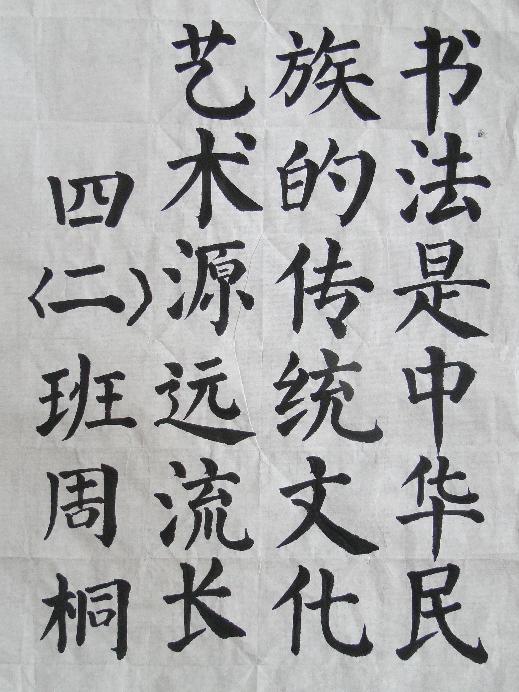 书法是中华民
族的传统文化
艺术源远流长
四（二）班周桐